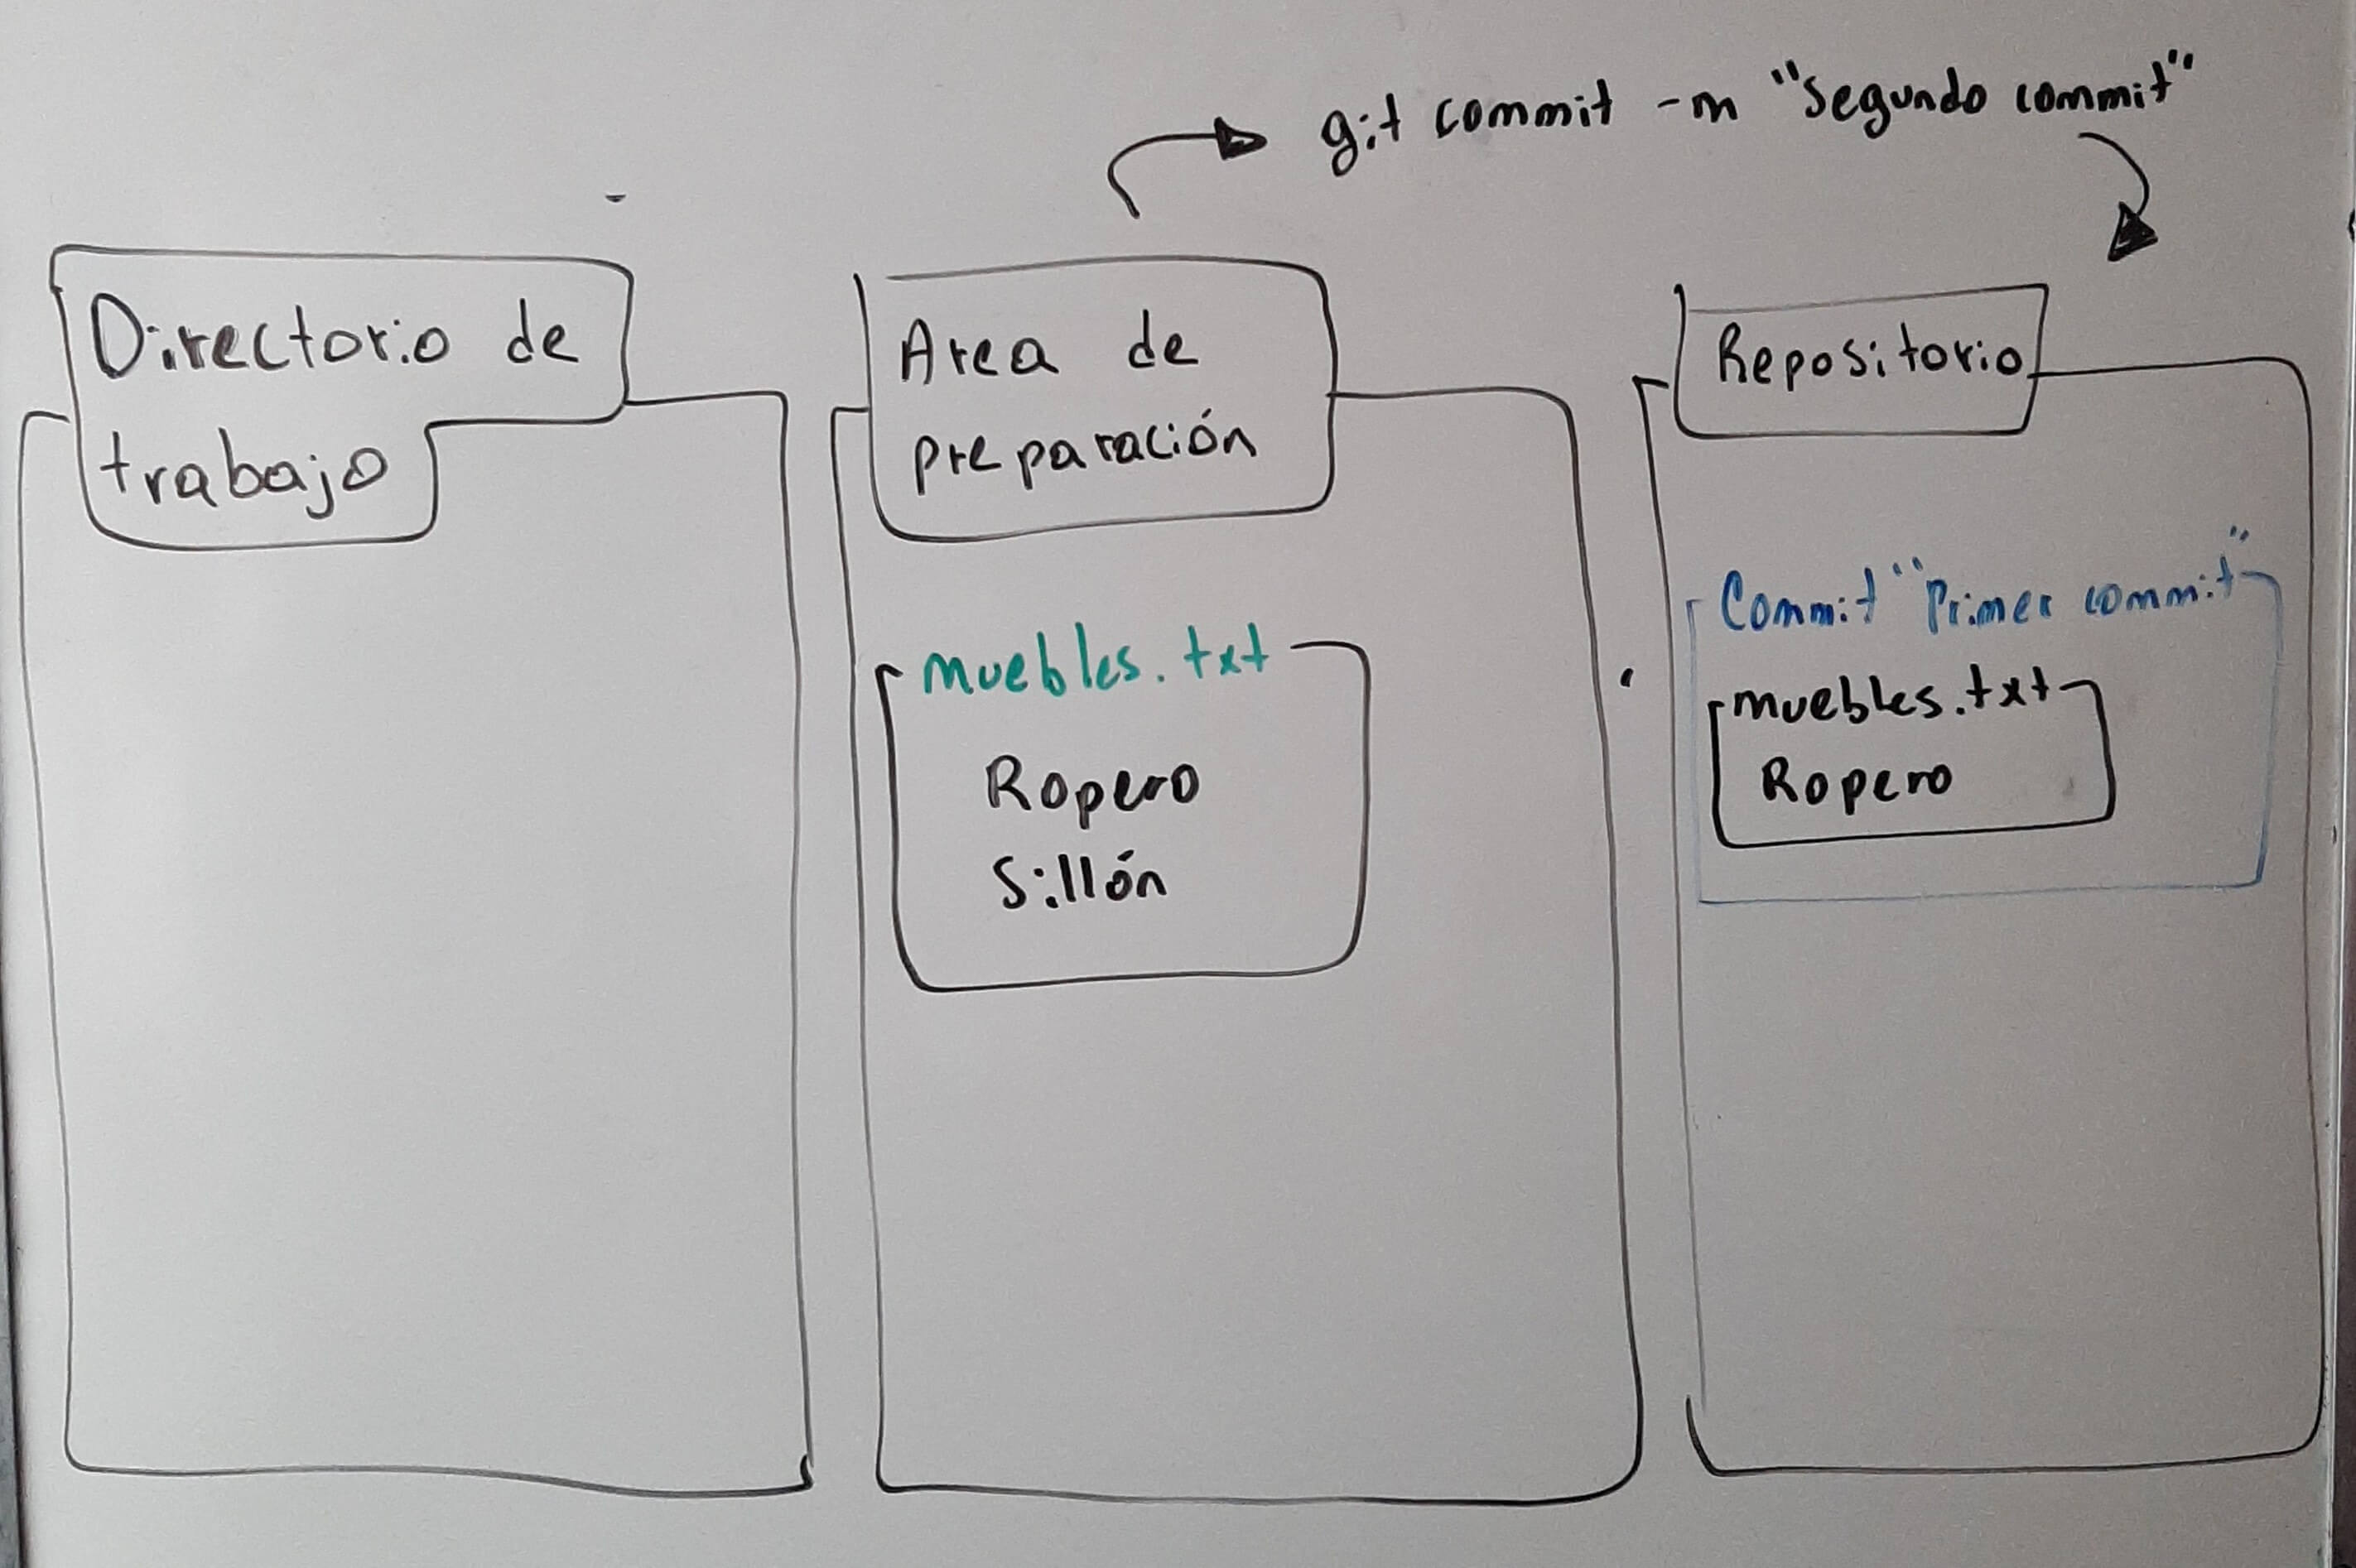 git commit -m "Segundo commit"
Directorio de
trabajo
Area de
preparación
muebles.txt
Ropero
Sillón
Repositorio
Commit "Primer commit"
muebles.txt
Ropero